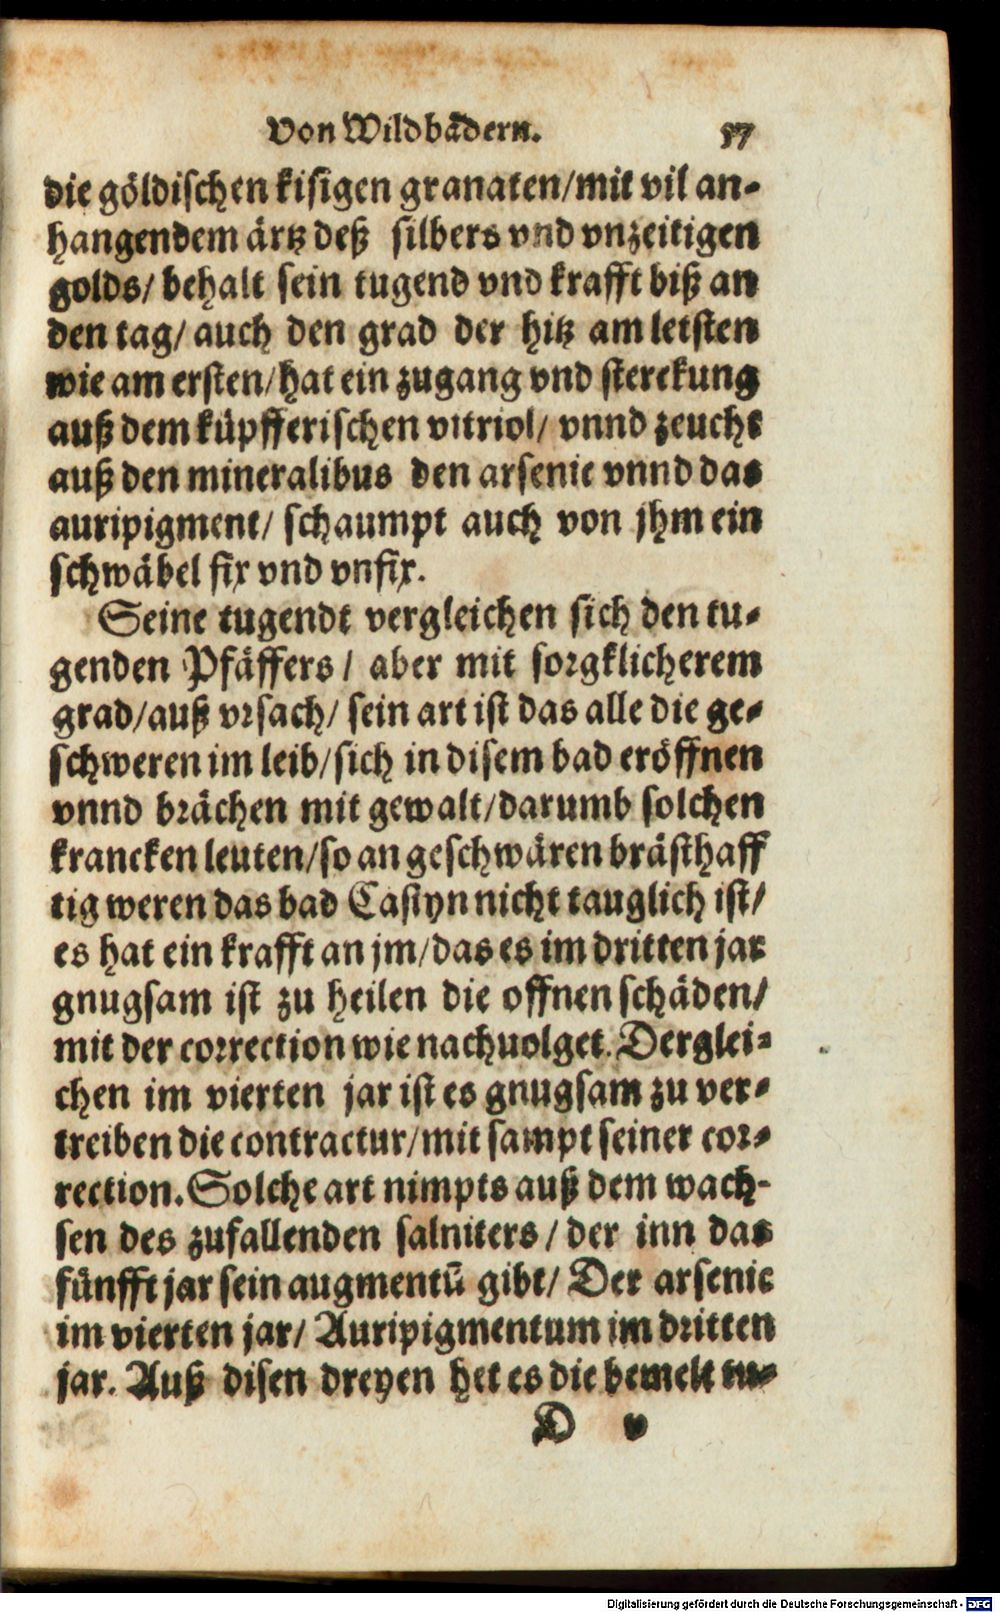 Von Wildbädern. 57
die göldischen kisigen granaten/mit vil an-
hangendem ärtz deß silbers vnd vnzeitigen
golds/ behalt sein tugend vnd krafft biß an
den tag/ auch den grad der hitz am letsten
wie am ersten/hat ein zugang vnd sterckung
auß dem küpfferischen vitriol/ vnnd zeucht
auß den mineralibus den arsenic vnnd das
auripigment/ schaumpt auch von jhm ein
schwäbel fix vnd vnfix.
Seine tugendt vergleichen sich den tu-
genden Pfäffers/ aber mit sorgklicherem
grad/auß vrsach/ sein art ist das alle die ge-
schweren im leib/sich in disem bad eröffnen
vnnd brächen mit gewalt/darumb solchen
krancken leuten/so an geschwären brästhaff
tig weren das bad Castyn nicht tauglich ist/
es hat ein krafft an jm/das es im dritten jar
gnugsam ist zu heilen die offnen schäden/
mit der correction wie nachuolget. Derglei-
chen im vierten jar ist es gnugsam zu ver-
treiben die contractur/mit sampt seiner cor-
rection. Solche art nimpts auß dem wach-
sen des zufallenden salniters/ der inn das
fünfft jar sein augmentū gibt/ Der arsenic
im vierten jar/ Auripigmentum im dritten
jar. Auß disen dreyen het es die bemelt tu-
D v
Digitalisierung gefördert durch die Deutsche Forschungsgemeinschaft - DFG